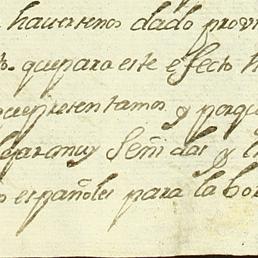 haversenos dado provi
to. que para este efecto h
que presentamos y porque
para muy señidas y l
españoles para la bor